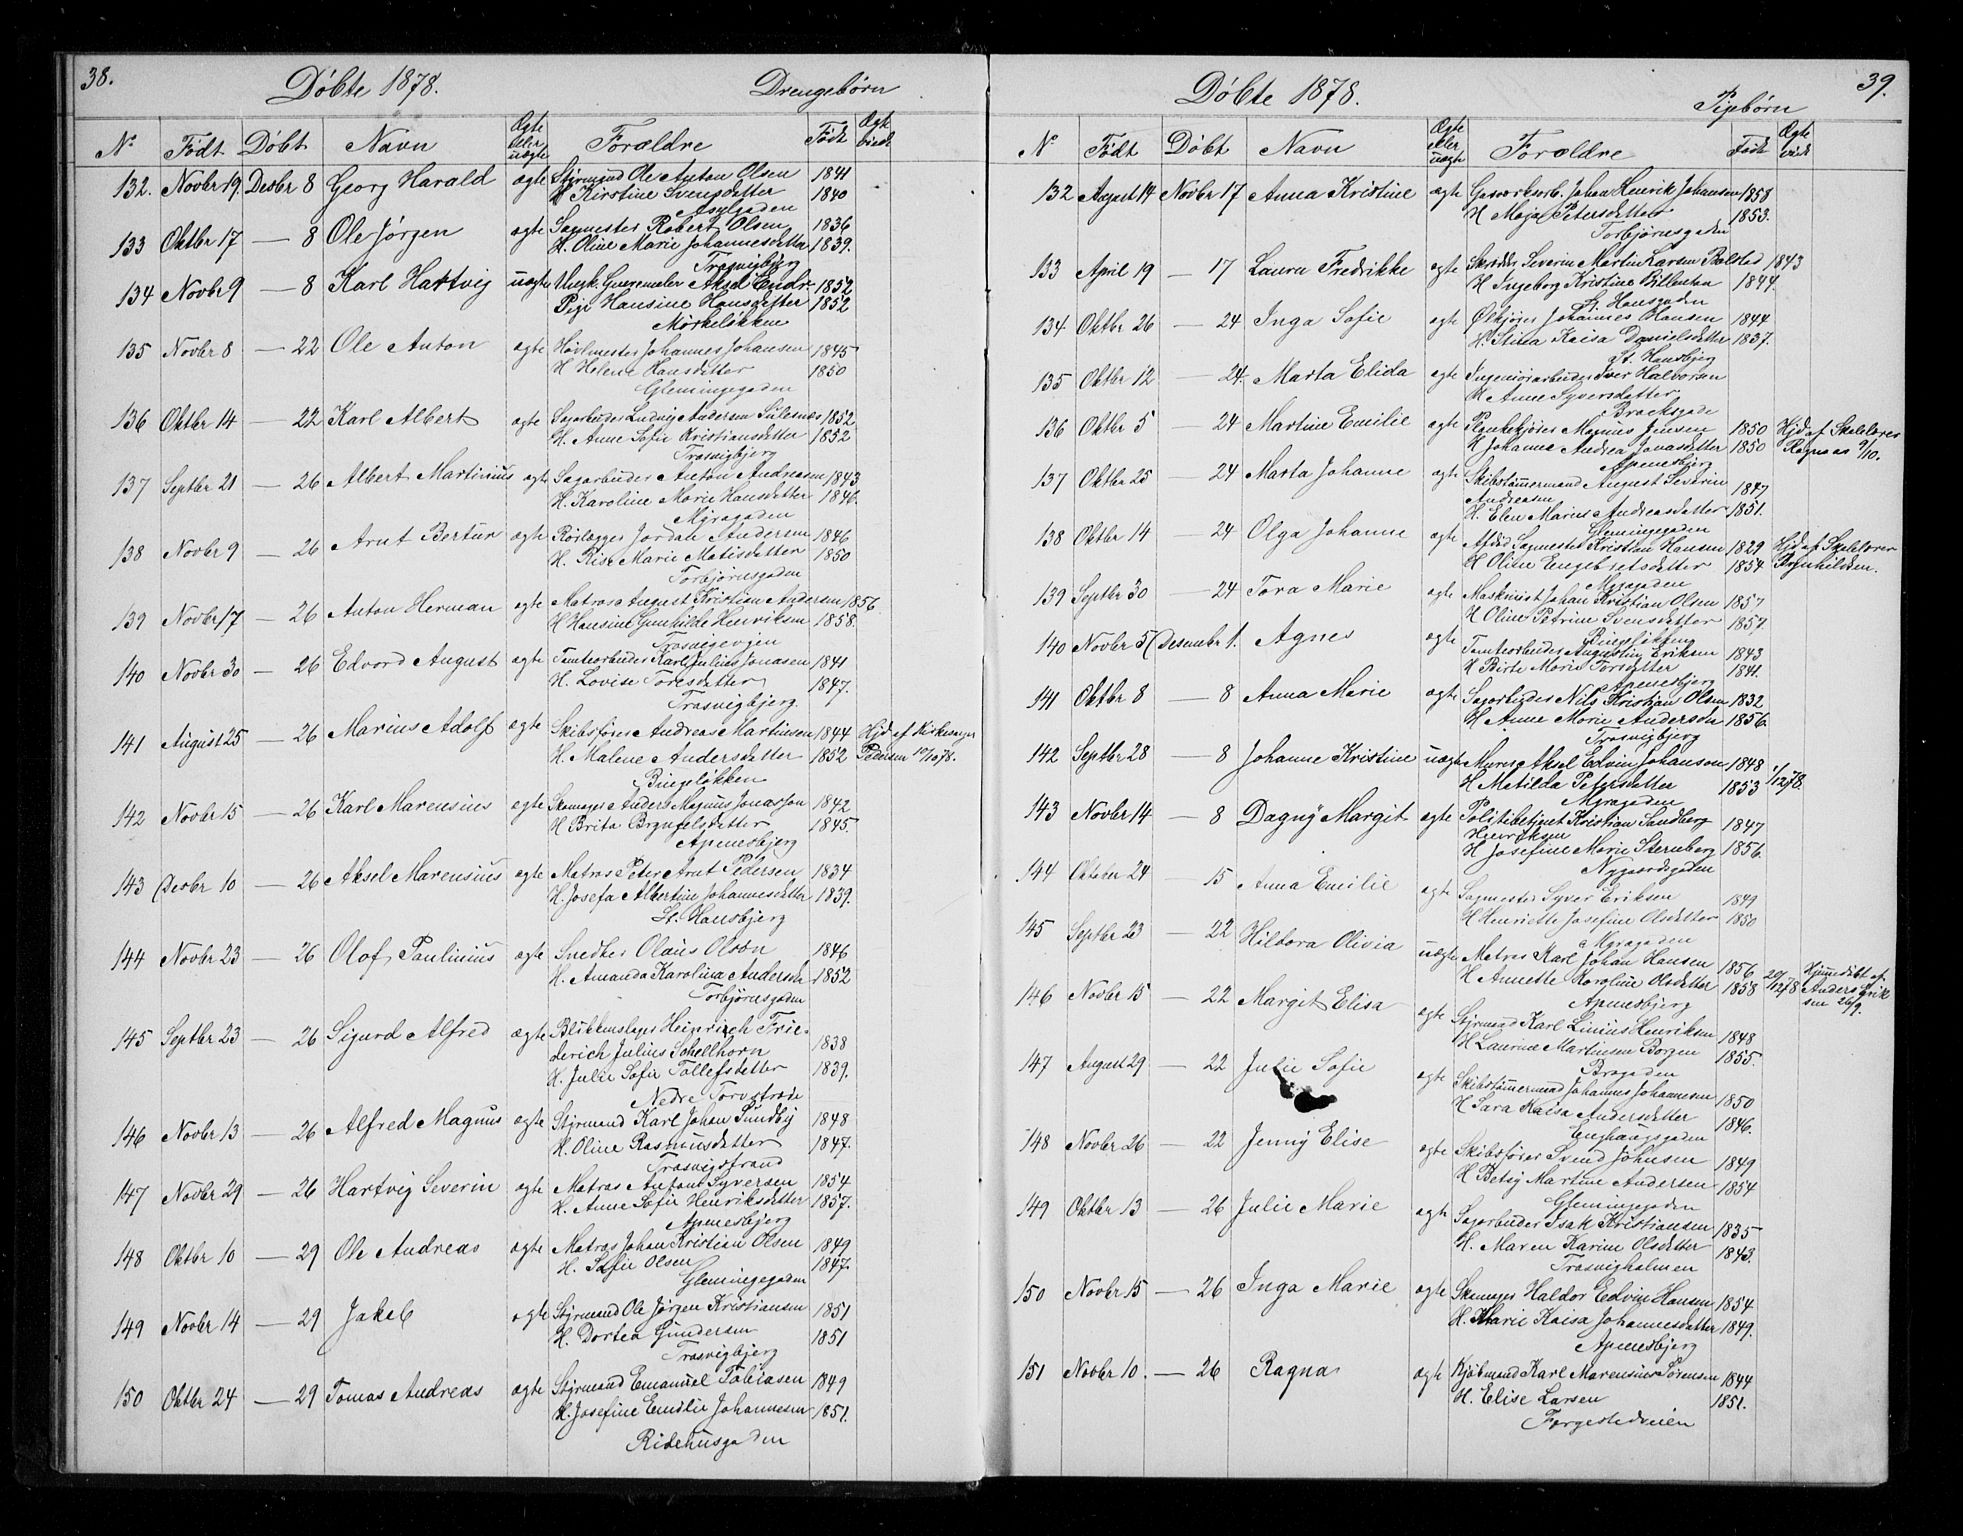 38.
Døbte 1878.
Drengebørn
No Født Døbt Navn Ægte eller uægte Forældre Født Ægteviede
132. Novbr 19. Desbr 8 Georg Harald ægte Styrmand Ole Anton Olsen 1841
H Kirstine Svensdatter 1840
Asylgaden
133 Oktbr 17 — 8 Ole Jørgen ægte Sagmester Robert Olsen 1836
H. Oline Marie Johannesdatter 1839.
Trosvigbjerg
134 Novbr 9 — 8 Karl Hartvig uægte Ungk. Aksel Endr. 1852
Pige Hansine Hansdatter 1852
Mørkeløkken
135 Novbr 8 — 22 Ole Anton ægte Høvlmester Johannes Johansen 1845
H Helene Hansdatter 1850
Glemingegaden
136 Oktbr 14 — 22 Karl Albert ægte Sagarbeider Ludvig Andersen 1852.
H. Anne Sofie Kristiansdatter 1852
Trosvigbjerg
137 Septbr 21 — 26 Albert Martinius ægte Sagarbeider Anton Andreasen 1843
H. Karoline Marie Hansdatter 1846.
Myragaden
138 Novbr 9 — 26 Arnt Bertin ægte Rørlægger Jordan Andersen 1846
H. Marie Matisdatter 1850
Torbjørnsgaden
139 Novbr 17 — 26 Anton Herman ægte Matros August Kristian Andersen 1856
H Hansine Gunhilde Henriksen 1858.
Trosvigveien
140 Novbr 30 — 26 Edvard August ægte Tomtearbeider Karl Julius Jonasen 1841
H. Lovise Toresdatter 1847.
Trosvigbjerg
141 August 25 — 26 Marius Adolf ægte Skibsfører Andreas Martinsen 1844 Hjd af Kirkesanger
H. Malene Andersdatter 1852 Pedersen 10/10 78.
Bingeløkken
142 Novbr 15 — 26 Karl Marensius ægte Skomager Anders Magnus Jonasson 1842
H Brita Brynfelsdatter 1845.
Apenesbjerg
143 Desbr 10 — 26 Aksel Marensius ægte Matros Peter Arnt Pedersen 1834
H. Josefa Albertine Johannesdatter 1839.
St. Hansbjerg
144 Novbr 23 — 26 Olaf Paulinius ægte Snedker Olaus Olsen 1846
H. Amanda Karolina Andersdr 1852
Torbjørnsgaden
145 Septbr 23 — 26 Sigurd Alfred ægte Blikkenslager Heinrich Frie-
derich Julius Schellhorn 1838
H. Julie Sofie Tollefsdatter 1839.
Nedre Torvstræde
146 Novbr 13 — 26 Alfred Magnus ægte Styrmand Karl Johan Sundby 1848
H. Oline Rasmusdatter 1847.
Trosvigstrand
147 Novbr 29 — 26 Hartvig Severin ægte Matros Antoni Syversen 1854
H. Anne Sofie Henriksdatter 1857.
Apenesbjerg
148 Oktbr 10 — 29 Ole Andreas ægte Matros Johan Kristian Olsen 1849
H. Sofie Olsen 1847.
Glemingegaden
149 Novbr 14 — 29 Jakob ægte Styrmand Ole Jørgen Kristiansen 1851
H. Dortea Gundersen 1851
Trosvigbjerg
150 Oktbr 24 — 29 Tomas Andreas ægte Styrmand Emanuel Tobiasen 1849
H. Josefine Emilie Johannesen 1851.
Ridehusgaden
39.
Døbte 1878.
Pigebørn
No Født Døbt Navn Ægte eller uægte Forældre Født Ægteviede
132 August 14 Novbr 17 Anna Kristine ægte Gasværksarb. Johan Henrik Johansen 1858
H Maja Petersdatter 1853.
Torbjørnsgaden
133 April 19 — 17 Laura Fredrikke ægte Skrædder Severin Martin Larsen Bolsted 1843
H Ingeborg Kristine 1844.
St. Hansgaden
134 Oktbr 26 — 24 Inga Sofie ægte Johannes Hansen 1844
H. Stina Kaisa Danielsdatter 1837.
St. Hansbjerg
135 Oktbr 12 — 24. Marta Elida ægte Ingeniørarbeider Iver Halvorsen
H Anne Syversdatter
Brochsgade
136 Oktbr 5 — 24 Martine Emilie ægte Plankekjører Magnus Jensen 1850 Hjd af Skolelærer
H Johanne Andrea Jonasdatter 1850 Rognaas 9/10.
Apenesbjerg
137 Oktbr 25 — 24 Marta Johanne ægte Skibstømmermand August Severin
Andreasen 1847
H. Elen Marie Andreasdatter 1851.
Glemingegaden
138 Oktbr 14 — 24 Olga Johanne ægte Afdød Sagmester Kristian Hansen 1829 Hjd af Skolelærer
H Oline Engebretsdatter 1854. Brynhildsen.
Myragaden
139 Septbr 30 — 24 Tora Marie ægte Maskinist Johan Kristian Olsen 1857
H Oline Petrine Svensdatter 1857.
Bingeløkken
140 Novbr 5 Desembr 1. Agnes ægte Tomtearbeider Augustin Eriksen 1843
H Birte Marie Torsdatter 1841.
Apenesbjerg
141 Oktbr 8 — 8 Anna Marie ægte Sagarbeider Nils Kristian Olsen 1832
H Anne Marie Andersen 1856.
Trosvigbjerg
142 Septbr 28 — 8 Johanne Kristine uægte Murer Aksel Edvin Johansen 1848 1/12 78.
H Matilda Petersdatter 1853
Myragaden
143 Novbr 14 — 8 Dagny Margit ægte Politibetjent Kristian Sandberg 1847
Henriksen
H Josefine Marie Sternberg 1856.
Nygaardsgaden
144 Oktober 24 — 15 Anna Emilie ægte Sagmester Syver Eriksen 1849
H Henriette Josefine Olsdatter 1850
Myragaden
145 Septbr 23 — 22 Hildora Olivia uægte Matros Karl Johan Hansen 1856 20/12 78 Hjemmedøbt af
H Annette Karoline Olsdatter 1858 Anders Erik-
Apenesbjerg sen 26/9.
146 Novbr 15 — 22 Margit Elisa ægte Styrmand Karl Linius Henriksen 1848
H Laurine Martinsen Borgen 1855.
Brogaden
147 August 29 — 22 Julie Sofie ægte Skibstømmermand Johannes Johannesen 1850
H Sara Kaisa Andersdatter 1846.
Enghaugsgaden
148 Novbr 26 — 22 Jenny Elise ægte Skibsfører Svend Johnsen 1849
H Betsy Martine Andersen 1854
Glemingegaden
149 Oktbr 13 — 26 Julie Marie ægte Sagarbeider Isak Kristiansen 1835
H. Maren Karine Olsdatter 1843.
Trosvigholmen
150 Novbr 15 — 26 Inga Marie ægte Skomager Haldor Edvin Hansen 1854
H. Marie Kaisa Johannesdatter 1849.
Apenesbjerg
151 Novbr 10. — 26 Ragna ægte Kjøbmand Karl Marensius Sørensen 1844
H. Elise Larsen 1851.
Færgestedveien